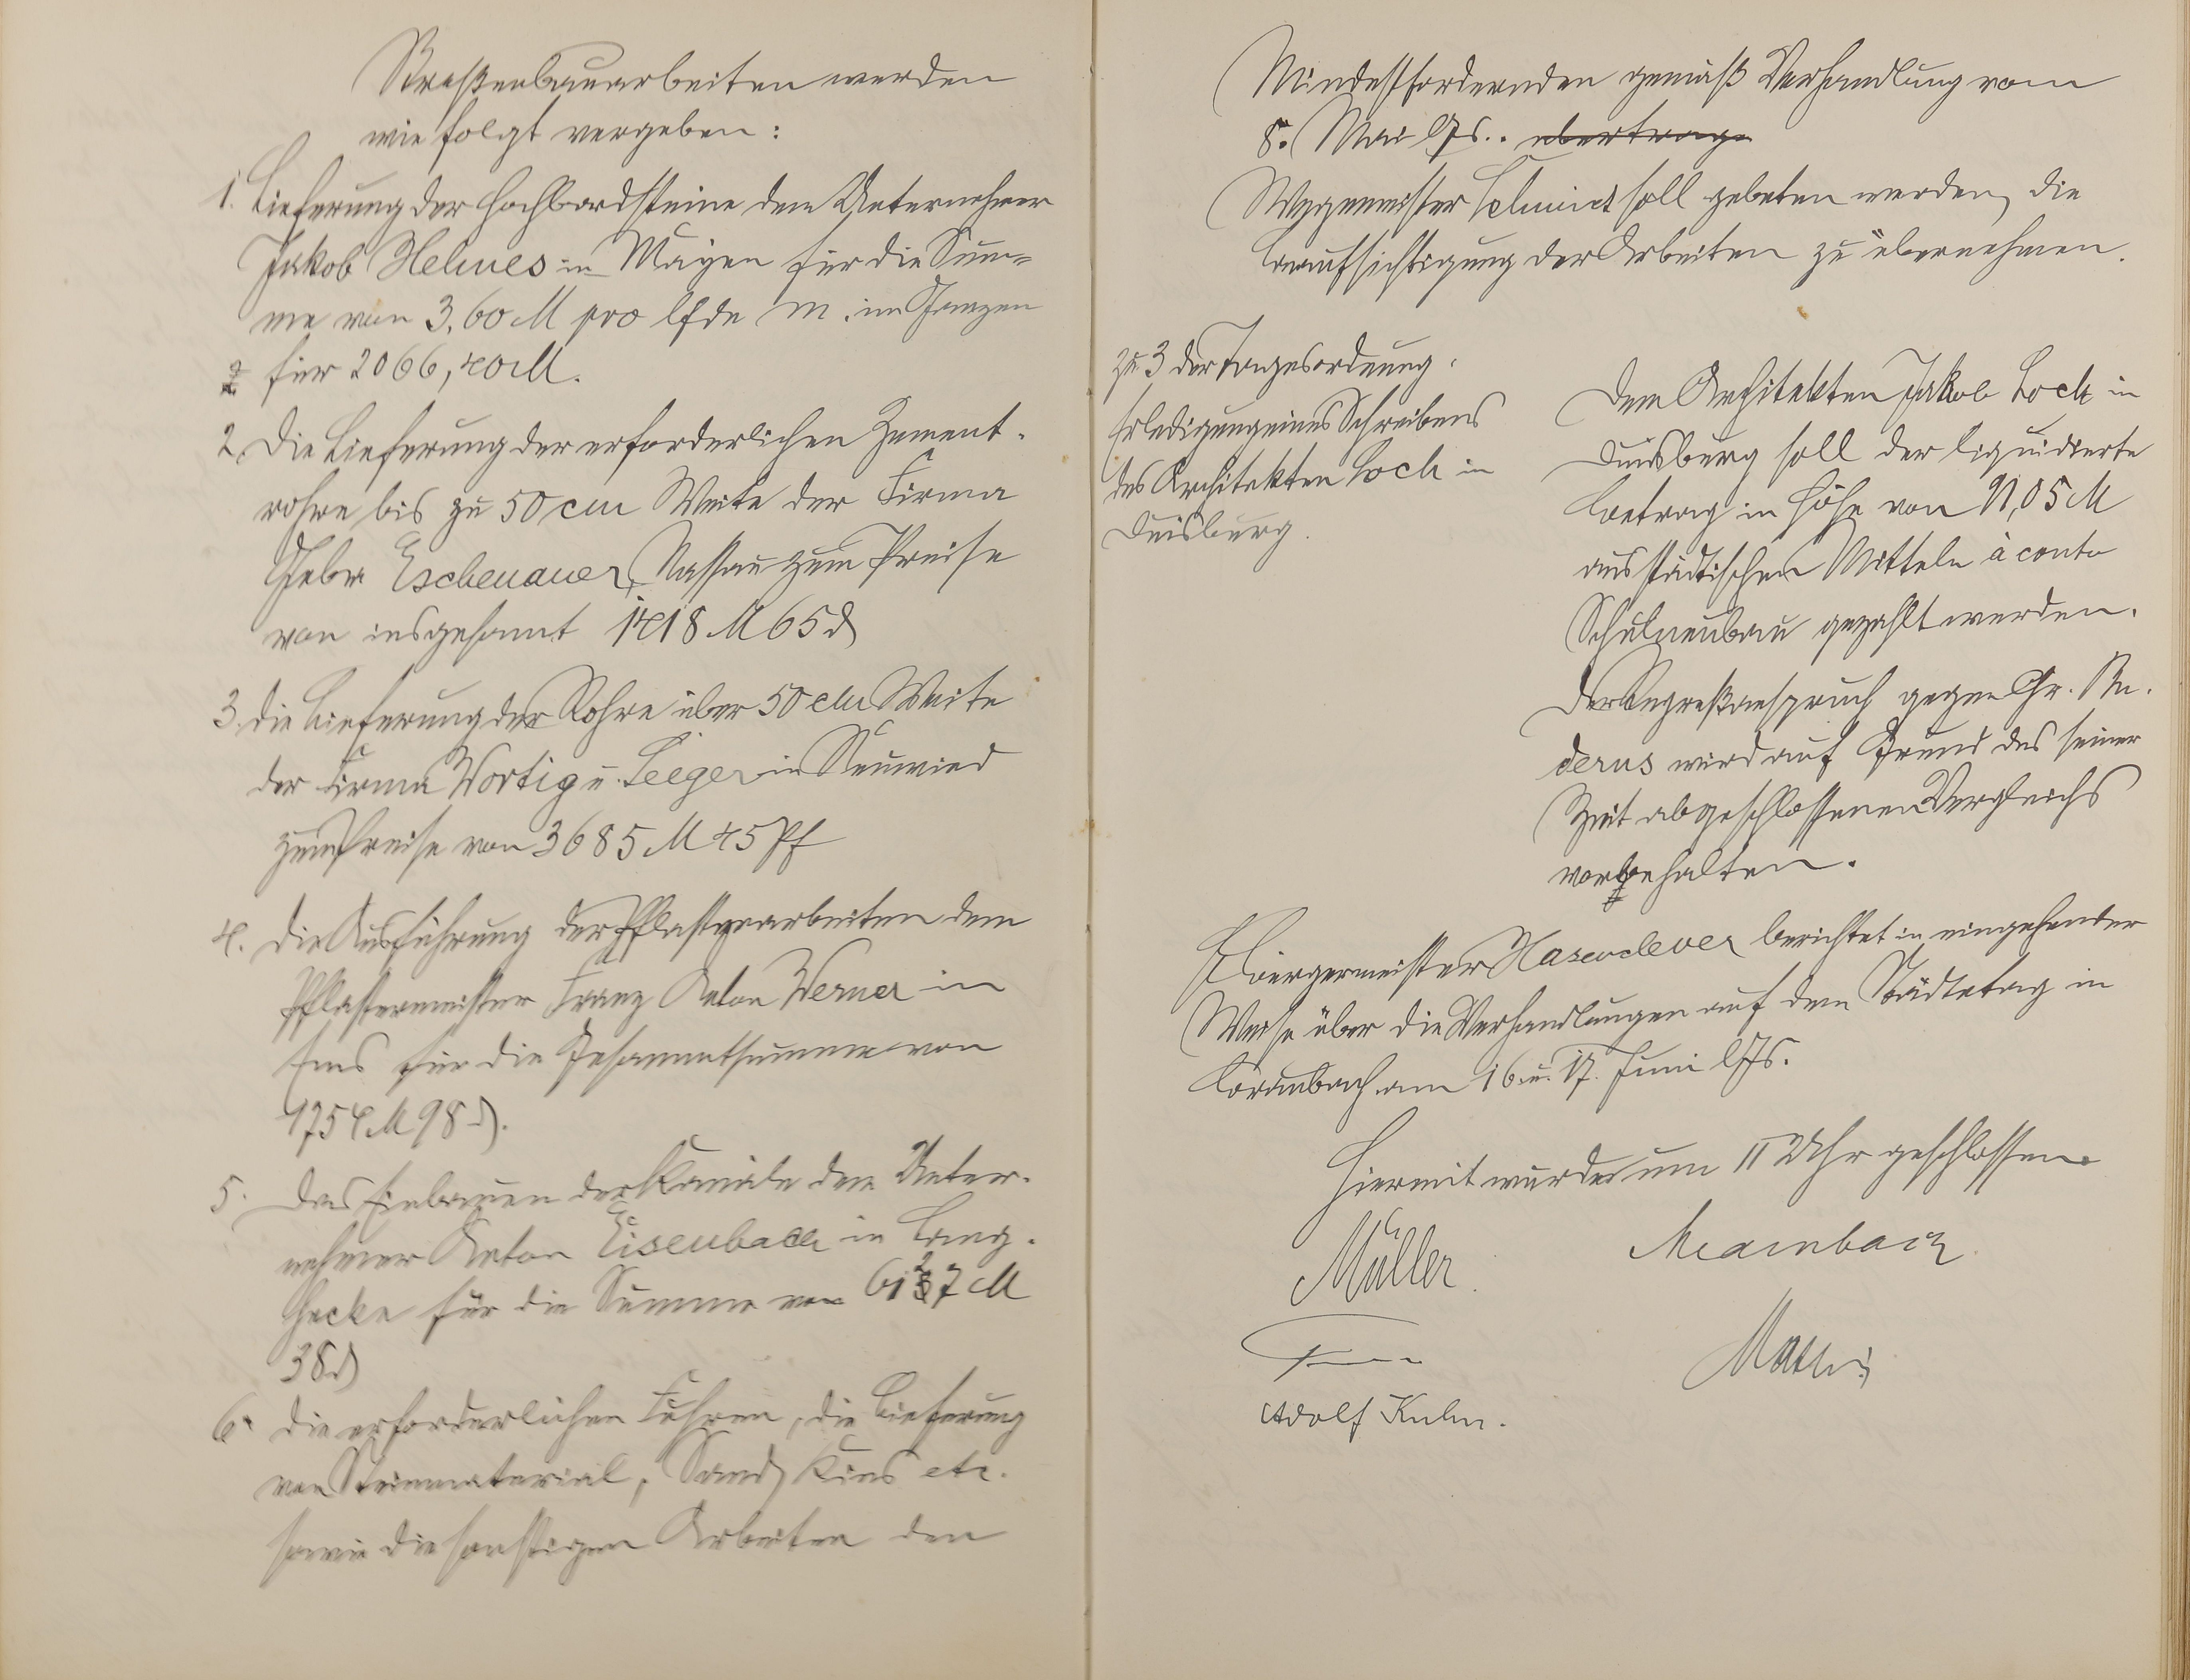 Straßenbauarbeiten werden
wie folgt vergeben:
1. Lieferung der Hochbordsteine dem Unternehmer
Jakob Helmes in Mayen für die Sum=
me von 3,60 M pro lfde m. im Ganzen
für 2066,40 M.
2. Die Lieferung der erforderlichen Zement-
rohre bis zu 50 cm Weite der Firma
Gebr. Eschenauer, Nassau zum Preise
von insgesamt 1418 M 65 ₰
3. die Lieferung der Rohre über 50 cm Weite
der Firma Wortig u. Seeger in Neuwied
zum Preise von 3685 M 45 Pf
4. die Ausführung der Pflasterarbeiten dem
Pflastermeister Franz Anton Werner in
Ems für die Gesammtsumme von
1754 M 98 ₰.
5. Das Einbauen der Kanäle dem Unter-
nehmer Anton Eisenbach in Lang-
hecke für die Summe von 6127 M
38 ₰
6. die erforderlichen Fuhren, die Lieferung
von Steinmaterial, Sand, Kies etc.
sowie die sonstigen Arbeiten den
Mindestfordernden gemäß Verhandlung vom
8. Mai lfJs.. übertrage
Wegemeister Schmidt soll gebeten werden, die
Beaufsichtigung der Arbeiten zu übernehmen.
zu 3 der Tagesordnung.
Erledigung eines Schreibens
des Architekten Loch in
Duisburg.
Dem Architekten Jakob Loch in
Duisburg soll der liquidierte
Betrag in Höhe von 91,05 M
aus städtischen Mitteln à conto
Schulneubau gezahlt werden.
Der Regreßanspruch gegen Chr. Bu-
derus wird auf Grund des seiner
Zeit abgeschlossenen Vergleichs
vorbehalten.
Bürgermeister Hasenclever berichtet in eingehender
Weise über die Verhandlungen auf dem Städtetag in
am 16. u. 17. Juni lfJs.
Hiermit wurde um 11 Uhr geschlossen.
Müller
Adolf Kuhn.